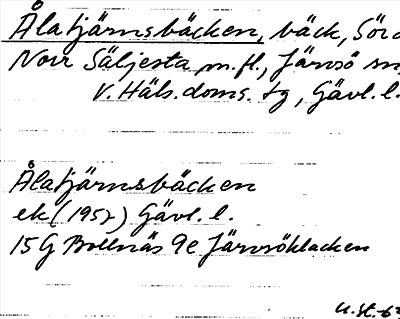 Ålatjärnsbäcken, bäck, Söra
Norr Säljesta m.fl., Järvsö sn,
v. Häls. doms. tg, Gävl. l.
Ålatjärnsbäcken
ek (1957) Gävl. l.
15G Bollnäs 9e Järvsöklacken
u. st. -63